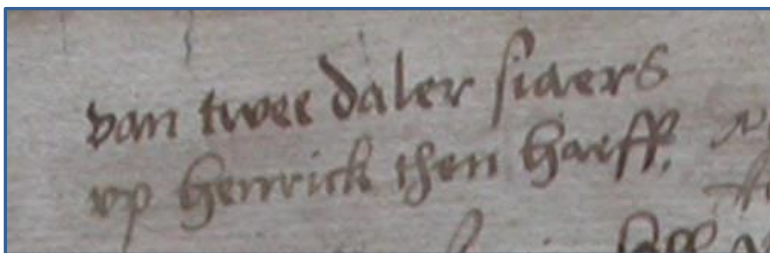 van twee daler siaers
vp Henrick then Haeff,